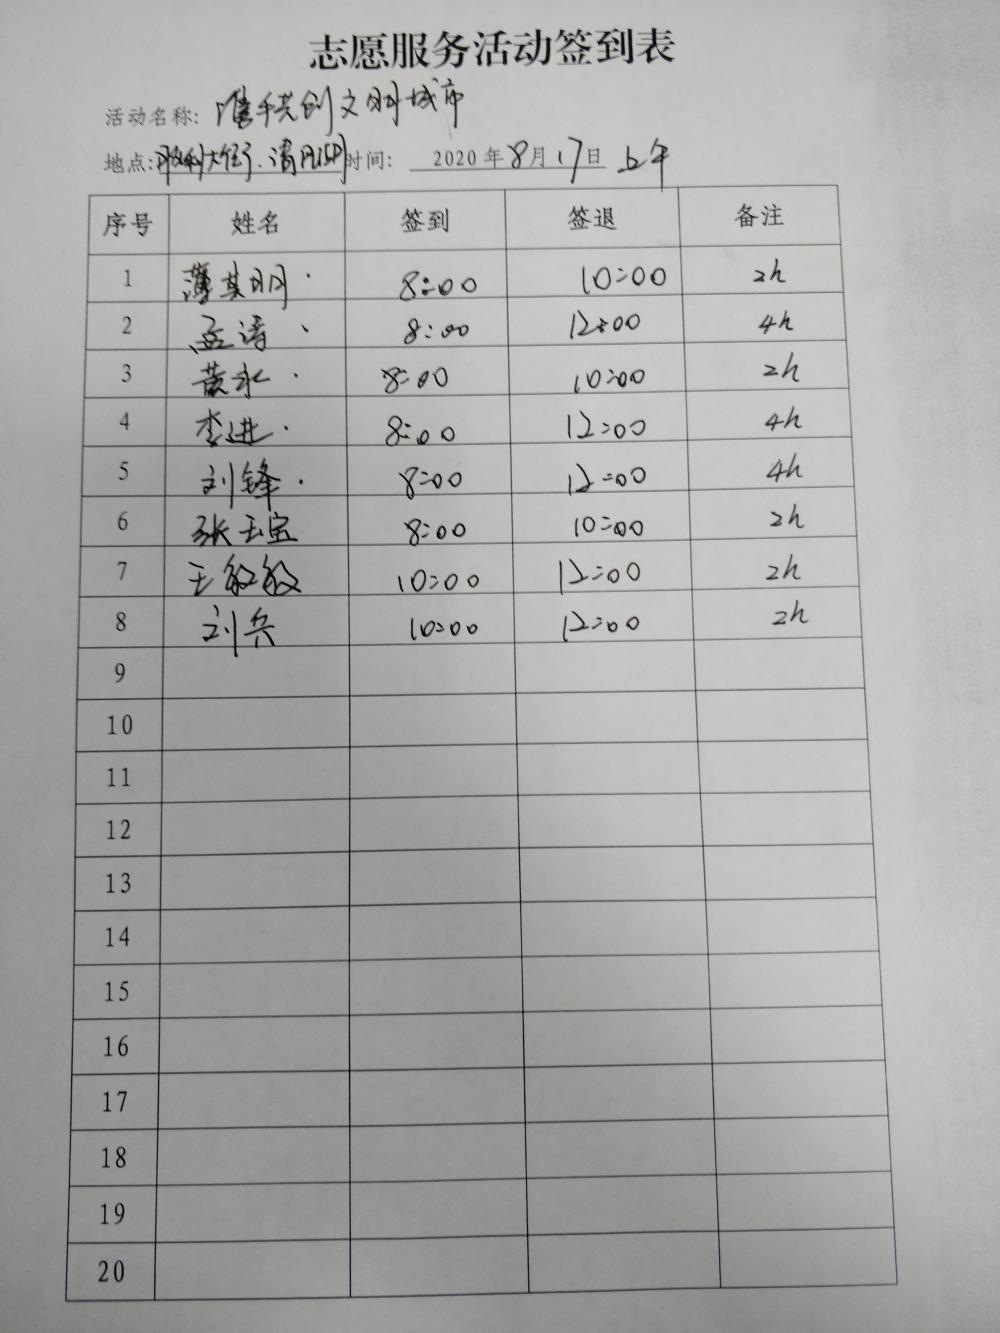 志愿服务活动签到表
活动名称: 携手共创文明城市
地点: 胜利大街、清风 时间: 2020年8月17日 上午
序号 姓名 签到 签退 备注
1 薄其明 8:00 10:00 2h
2 孟涛 8:00 12:00 4h
3 黄永 8:00 10:00 2h
4 李进 8:00 12:00 4h
5 刘锋 8:00 12:00 4h
6 张玉宝 8:00 10:00 2h
7 王敏敏 10:00 12:00 2h
8 刘兵 10:00 12:00 2h
9
10
11
12
13
14
15
16
17
18
19
20